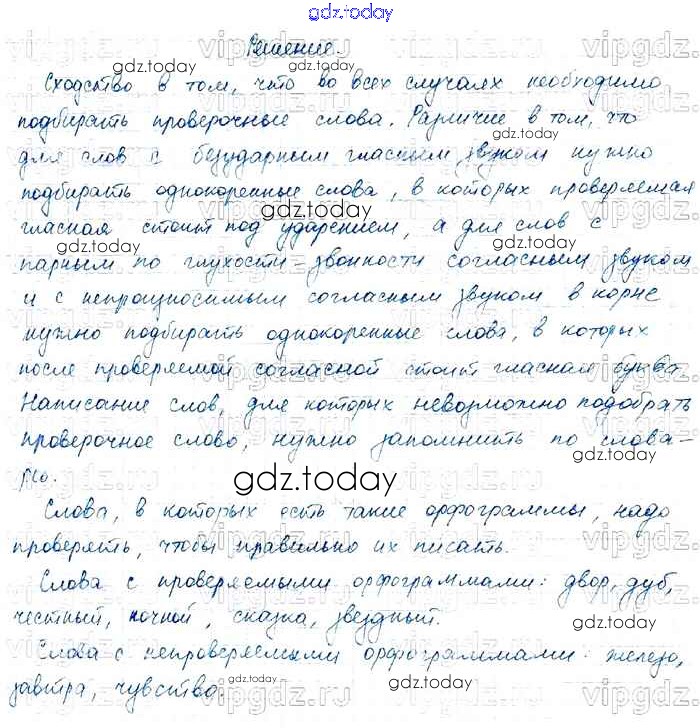 gdz.today
Решение.
Сходство в том, что во всех случаях необходимо
подбирать проверочные слова. Различие в том, что
для слов с безударным гласным звуком нужно
подбирать однокоренные слова, в которых проверяемая
гласная стоит под ударением, а для слов с
парным по глухости-звонкости согласным звуком
и с непроизносимым согласным звуком в корне
нужно подбирать однокоренные слова, в которых
после проверяемой согласной стоит гласная буква.
Написание слов, для которых невозможно подобрать
проверочное слово, нужно запомнить по слова-
рю.
Слова, в которых есть такие орфограммы, надо
проверять, чтобы правильно их писать.
Слова с проверяемыми орфограммами: двор, дуб,
честный, ночной, сказка, звездный.
Слова с непроверяемыми орфограммами: железо,
завтра, чувство.